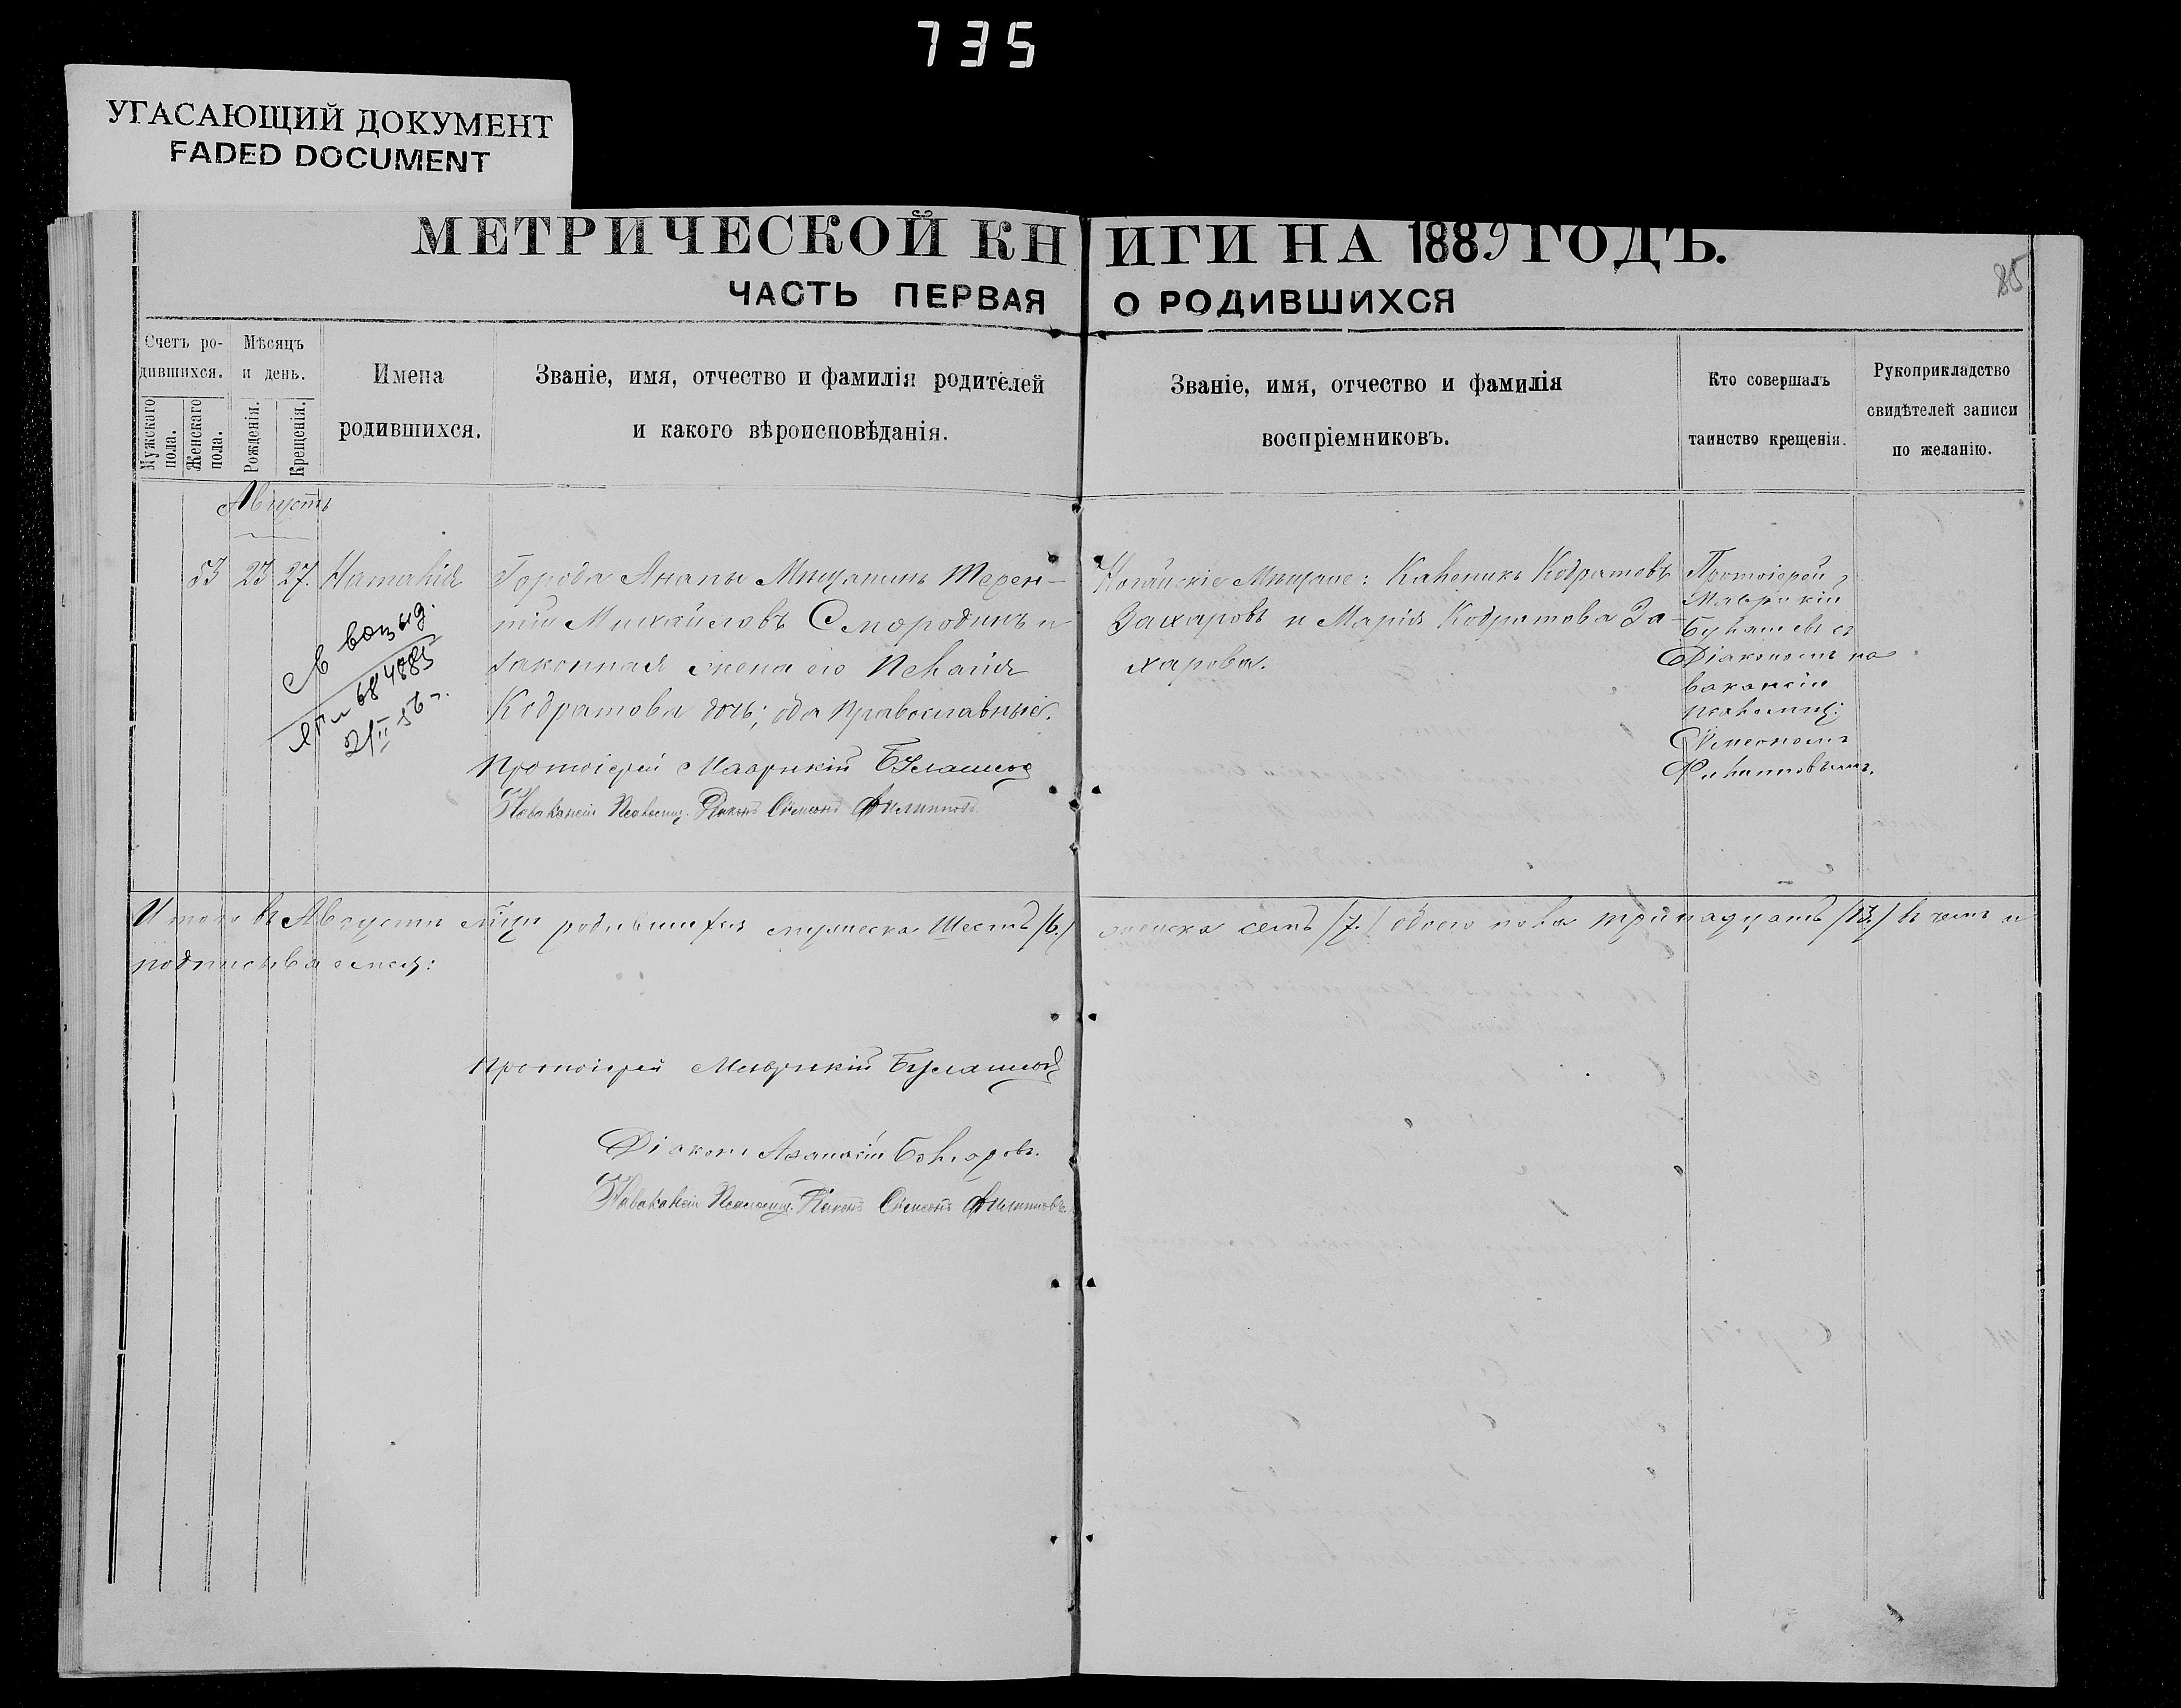 735
УГАСАЮЩИЙ ДОКУМЕНТ
FADED DOCUMENT
МЕТРИЧЕСКОЙ КНИГИ НА 1889 ГОДЪ.
85
ЧАСТЬ ПЕРВАЯ О РОДИВШИХСЯ
Счетъ ро-
дившихся.
Мужскаго пола.
Женскаго пола.
Мѣсяцъ
и день.
Рожденія.
Крещенія.
Имена
родившихся.
Званіе, имя, отчество и фамилія родителей
и какого вѣроисповѣданія.
Званіе, имя, отчество и фамилія
воспріемниковъ.
Кто совершалъ
таинство крещенія.
Рукоприкладство
свидѣтелей записи
по желанію.
Августъ
53 23 27. Наталія
Города Анапы Мѣщанинъ Терен-
тій Михайловъ Смородинъ и
законная жена его Пелагія
Кодратова дочь; оба православные.
Протоіерей Маврикій
На вакансіи Псаломщ. Діаконъ Сѵмеонъ Филипповъ
Ногайскіе Мѣщане: Калиникъ Кодратовъ
Захаровъ и Марія Кодратова За-
харова.
Протоіерей
Маврикій
съ
Діакономъ на
вакансіи
псаломщ:
Сѵмеономъ
Филипповымъ.
684885
Итого въ Августѣ мѣцѣ родившихся мужеска шесть /6./ женска семь /7./ обоего пола тринадцать /13./ въ чемъ и
подписываемся:
Протоіерей Маврикій
Діаконъ Аѳанасій Болгаровъ.
На вакансіи Псаломщ. Діаконъ Сѵмеонъ Филипповъ.